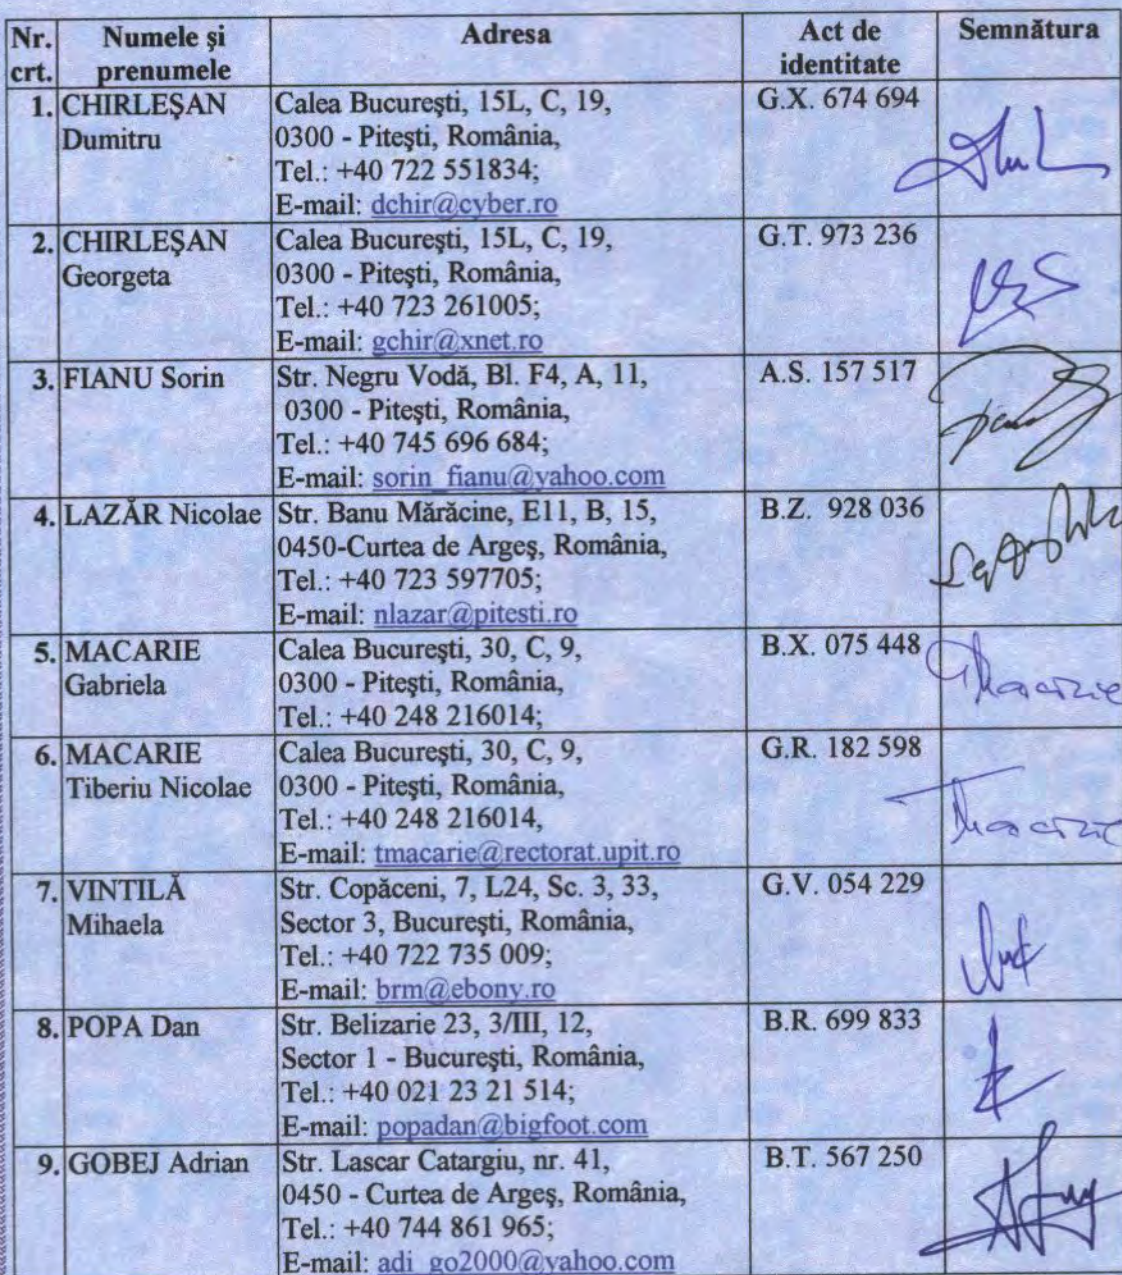 Nr. crt. Numele şi prenumele Adresa Act de identitate Semnătura
1. CHIRLEŞAN Dumitru
Calea Bucureşti, 15L, C, 19,
0300 - Piteşti, România,
Tel.: +40 722 551834;
E-mail: dchir@cyber.ro
G.X. 674 694
2. CHIRLEŞAN Georgeta
Calea Bucureşti, 15L, C, 19,
0300 - Piteşti, România,
Tel.: +40 723 261005;
E-mail: gchir@xnet.ro
G.T. 973 236
3. FIANU Sorin
Str. Negru Vodă, Bl. F4, A, 11,
0300 - Piteşti, România,
Tel.: +40 745 696 684;
E-mail: sorin_fianu@yahoo.com
A.S. 157 517
4. LAZĂR Nicolae
Str. Banu Mărăcine, E11, B, 15,
0450-Curtea de Argeş, România,
Tel.: +40 723 597705;
E-mail: nlazar@pitesti.ro
B.Z. 928 036
5. MACARIE Gabriela
Calea Bucureşti, 30, C, 9,
0300 - Piteşti, România,
Tel.: +40 248 216014;
B.X. 075 448
6. MACARIE Tiberiu Nicolae
Calea Bucureşti, 30, C, 9,
0300 - Piteşti, România,
Tel.: +40 248 216014,
E-mail: tmacarie@rectorat.upit.ro
G.R. 182 598
7. VINTILĂ Mihaela
Str. Copăceni, 7, L24, Sc. 3, 33,
Sector 3, Bucureşti, România,
Tel.: +40 722 735 009;
E-mail: brm@ebony.ro
G.V. 054 229
8. POPA Dan
Str. Belizarie 23, 3/III, 12,
Sector 1 - Bucureşti, România,
Tel.: +40 021 23 21 514;
E-mail: popadan@bigfoot.com
B.R. 699 833
9. GOBEJ Adrian
Str. Lascar Catargiu, nr. 41,
0450 - Curtea de Argeş, România,
Tel.: +40 744 861 965;
E-mail: adi_go2000@yahoo.com
B.T. 567 250